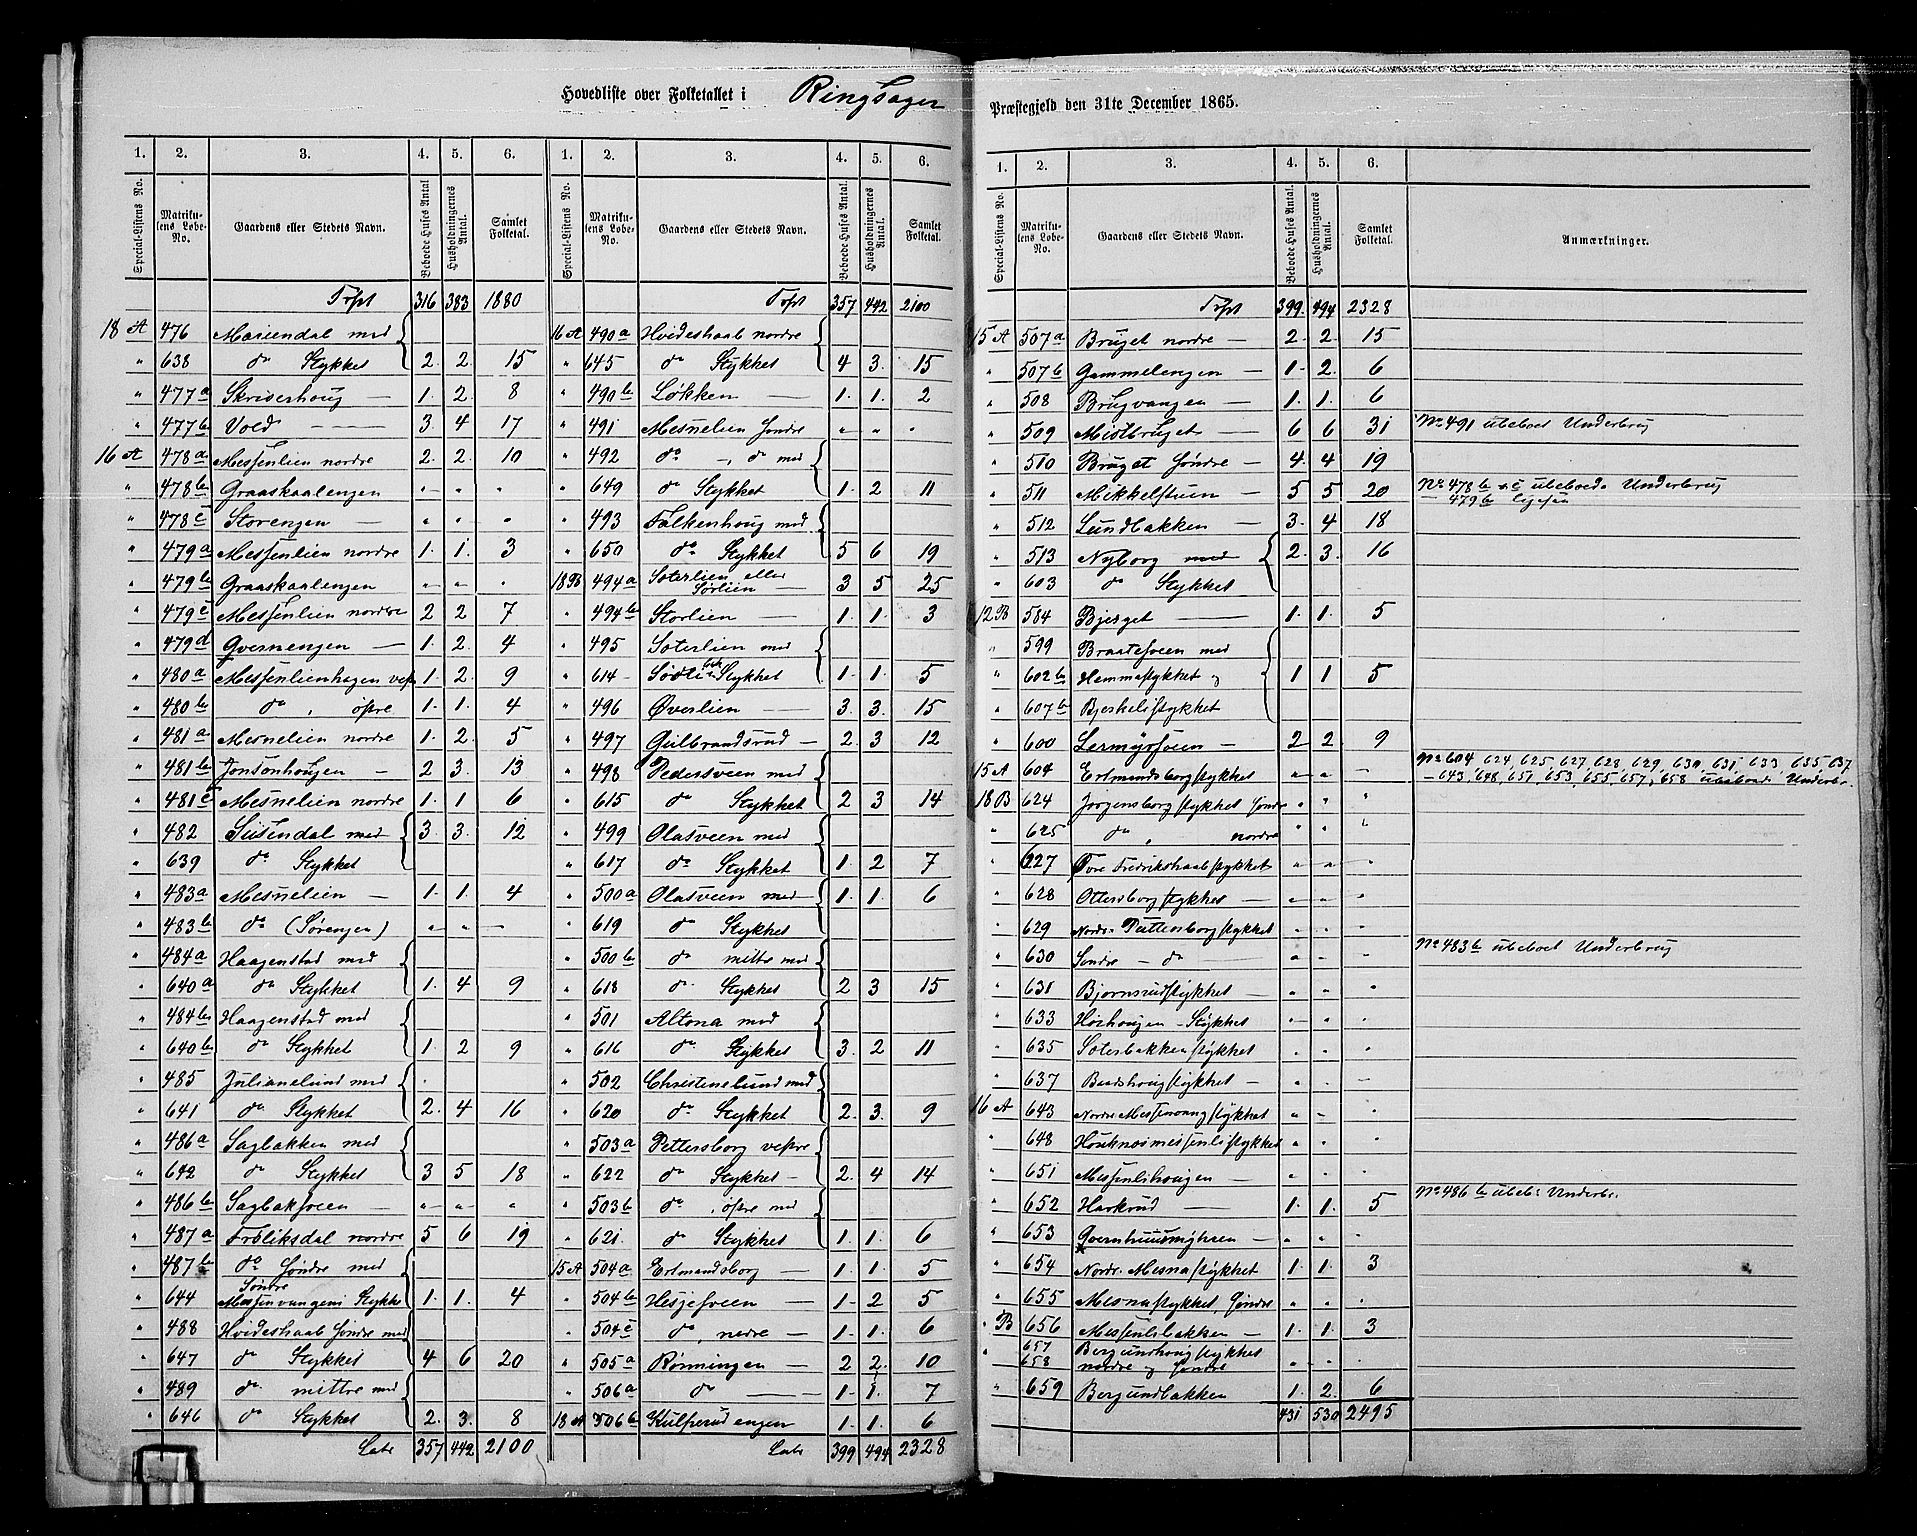 Hovedliste over Folketallet i Ringsager
Præstegjeld den 31te December 1865.
1. 2. 3. 4. 5. 6. 1. 2. 3. 4. 5. 6.
Special-Listens No. Matrikulens Løbe-No. Gaardens eller Stedets Navn. Beboede Huses Antal Husholdningernes Antal. Samlet Folketal. Special-Listens No. Matrikulens Løbe-No. Gaardens eller Stedets Navn. Beboede Huses Antal. Husholdningernes Antal. Samlet Folketal.
Trspt 316 383 1880
18 A 476 Mariendal med
" 638 do Stykket 2. 2. 15
" 477a Skriverhoug — 1. 2. 8
" 477b Vold — 3. 4 17
16 A 478a Messenlien nordre 2. 2. 10
" 478b Graaskaalengen " " "
" 478c Storengen — " " "
" 479a Messenlien nordre 1. 1. 3
" 479b Graaskaalengen " " "
" 479c Messenlien nordre 2 2 7
" 479d Qvernengen — 1. 2. 4
" 480a Messenlienhagen vestr 1. 2. 9
" 480b do, östre 1. 1. 4
" 481a Mesnelien nordre 1. 2. 5
" 481b Jonsonhougen — 2 3. 13
" 481c Mesnelien nordre 1. 1 6
" 482 SuSendal med 3. 3. 12
" 639 do Stykket
" 483a Mesnelien — 1. 1. 4
" 483b do (Sørengen) " " —
" 484a Haagenstad med
" 640a do Stykket 1. 4 9
" 484b Haagenstad med
" 640b do Stykket 1. 2 9
" 485 Julianelund med
" 641 do Stykket 2. 4 16
" 486a Sagbakken med
" 642 do Stykket 3 5 18
" 486b Sagbaksveen — " " "
" 487a Fröliksdal nordre 5 6 19
" 487b do Søndre med
" 644 Søndre Messenvangens Stykke 1. 1. 4
" 488 Hvideskaab Søndre med
" 647 do Stykket 4 6 20
" 489 do mittre med
" 646 do Stykket 2. 3. 8
Lats 357 442 2100
Trspt 357 442 2100
16 A 490a Hvideskaab nordre
" 645 do Stykket 4 3. 15
" 490b Løkken — 1. 1. 2
" 491 Mesnelien Søndre " " "
" 492 do —, do med
" 649 do Stykket 1. 2 11
" 493 Falkenhoug med
" 650 do Stykket 5 6 19
18 B 494a Soterlien eller Sørlien — 3 5 25
" 494b Storlien — 1. 1. 3
" 495 Soterlien med
" 614 Stykket 1. 1. 5
" 496 Øverlien — 3. 3. 15
" 497 Gulbrandsrud — 2. 3 12
" 498 Pedersveen med
" 615 do Stykket 2 3 14
" 499 Olasveen med
" 617 do Stykket 1. 2 7
" 500a Olasveen med 1. 1. 6
" 619 do Stykket
" 500b do mittre med
" 618 do Stykket 2 3 15
" 501 Altona med
" 616 do Stykket 3. 2 11
" 502 Christinelund med
" 620 do Stykket 2. 3. 9
" 503a Pettersborg vestre
" 622 do Stykket — 2. 4 14
" 503b do, östre med
" 621 do Stykket 1. 1. 6
15 A 504a Ertmandsborg — 1. 1. 5
" 504b Hesjesveen — 1. 2 5
" 504c do, nedre — 1. 1. 6
" 505a Rønningen — 2 2. 10
" 506a do — 1. 1. 7
18 A 506b Kulsverudengen 1. 1. 6
Lats 399 494 2328
1. 2. 3. 4. 5. 6.
Special-Listens No. Matrikulens Løbe-No. Gaardens eller Stedets Navn. Beboede Huses Antal. Husholdningernes Antal. Samlet Folketal. Anmærkninger.
Trspt 399. 494 2328
15 A 507a Bruget nordre — 2. 2. 15
" 507b Gammelengen — 1. 2. 6
" 508 Brugvangen — 1. 1. 6
" 509 Midtbruget — 6 6 31 No 491 ubeboet Underbrug
" 510 Bruget Søndre — 4. 4 19
" 511 Mikkelstuen — 5 5 20 No 478b & c ubeboede Underbrug
— 479b ligesaa
" 512 Lundbakken — 3. 4 18
" 513 Nyborg med 2. 3. 16
" 603 do Stykket
12 B 584 Bjerget — 1. 1. 5
" 599 Braatesveen med
" 602b Hemmastykket og 1 1 5
" 607b Bjerkelistykket
" 600 Lermyrsveen — 2 2. 9
15 A 604 Ertmandsborgstykket " " — No 604 624, 625, 627, 628, 629, 630, 631, 633, 635, 637
— 643, 648, 651, 653, 655, 657, 658 ubeboede Underbr.
18 B 624 Jörgensborgstykket Søndre " " "
" 625 do, nordre " " "
" 627 Tore Fredrikshaabstykket " " —
" 628 Ottersborgstykket — " " "
" 629 Nordr. Puttersborgstykket " " "
" 630 Søndre — do — " " — No 483b ubeboet Underbrug
" 631 Bjørnsrudstykket — " " "
" 633 Høihougen-Stykket " " "
" 635 Soterbakkenstykket " " "
" 637 Baadshougstykket — " " "
16 A 643 Nordre Messenvangstykket " " "
" 648 Houknosmessenlistykket " " "
" 651 Messenlihougen — " " "
" 652 Harkrud — 1. 1. 5 No 486b ubeb. Underbr.
" 653 Qvernhuusmyhren — " " "
" 654 Nordr. Mesnastykket 1. 1. 3
" 655 Mesnastykket, Søndre " " "
" B 656 Messenlibakken — 1. 1. 3
" 657 658 Bergundhougstykket nordre og Søndre " " "
" 659 Bergundbakken 1. 2. 6
431 530 2495